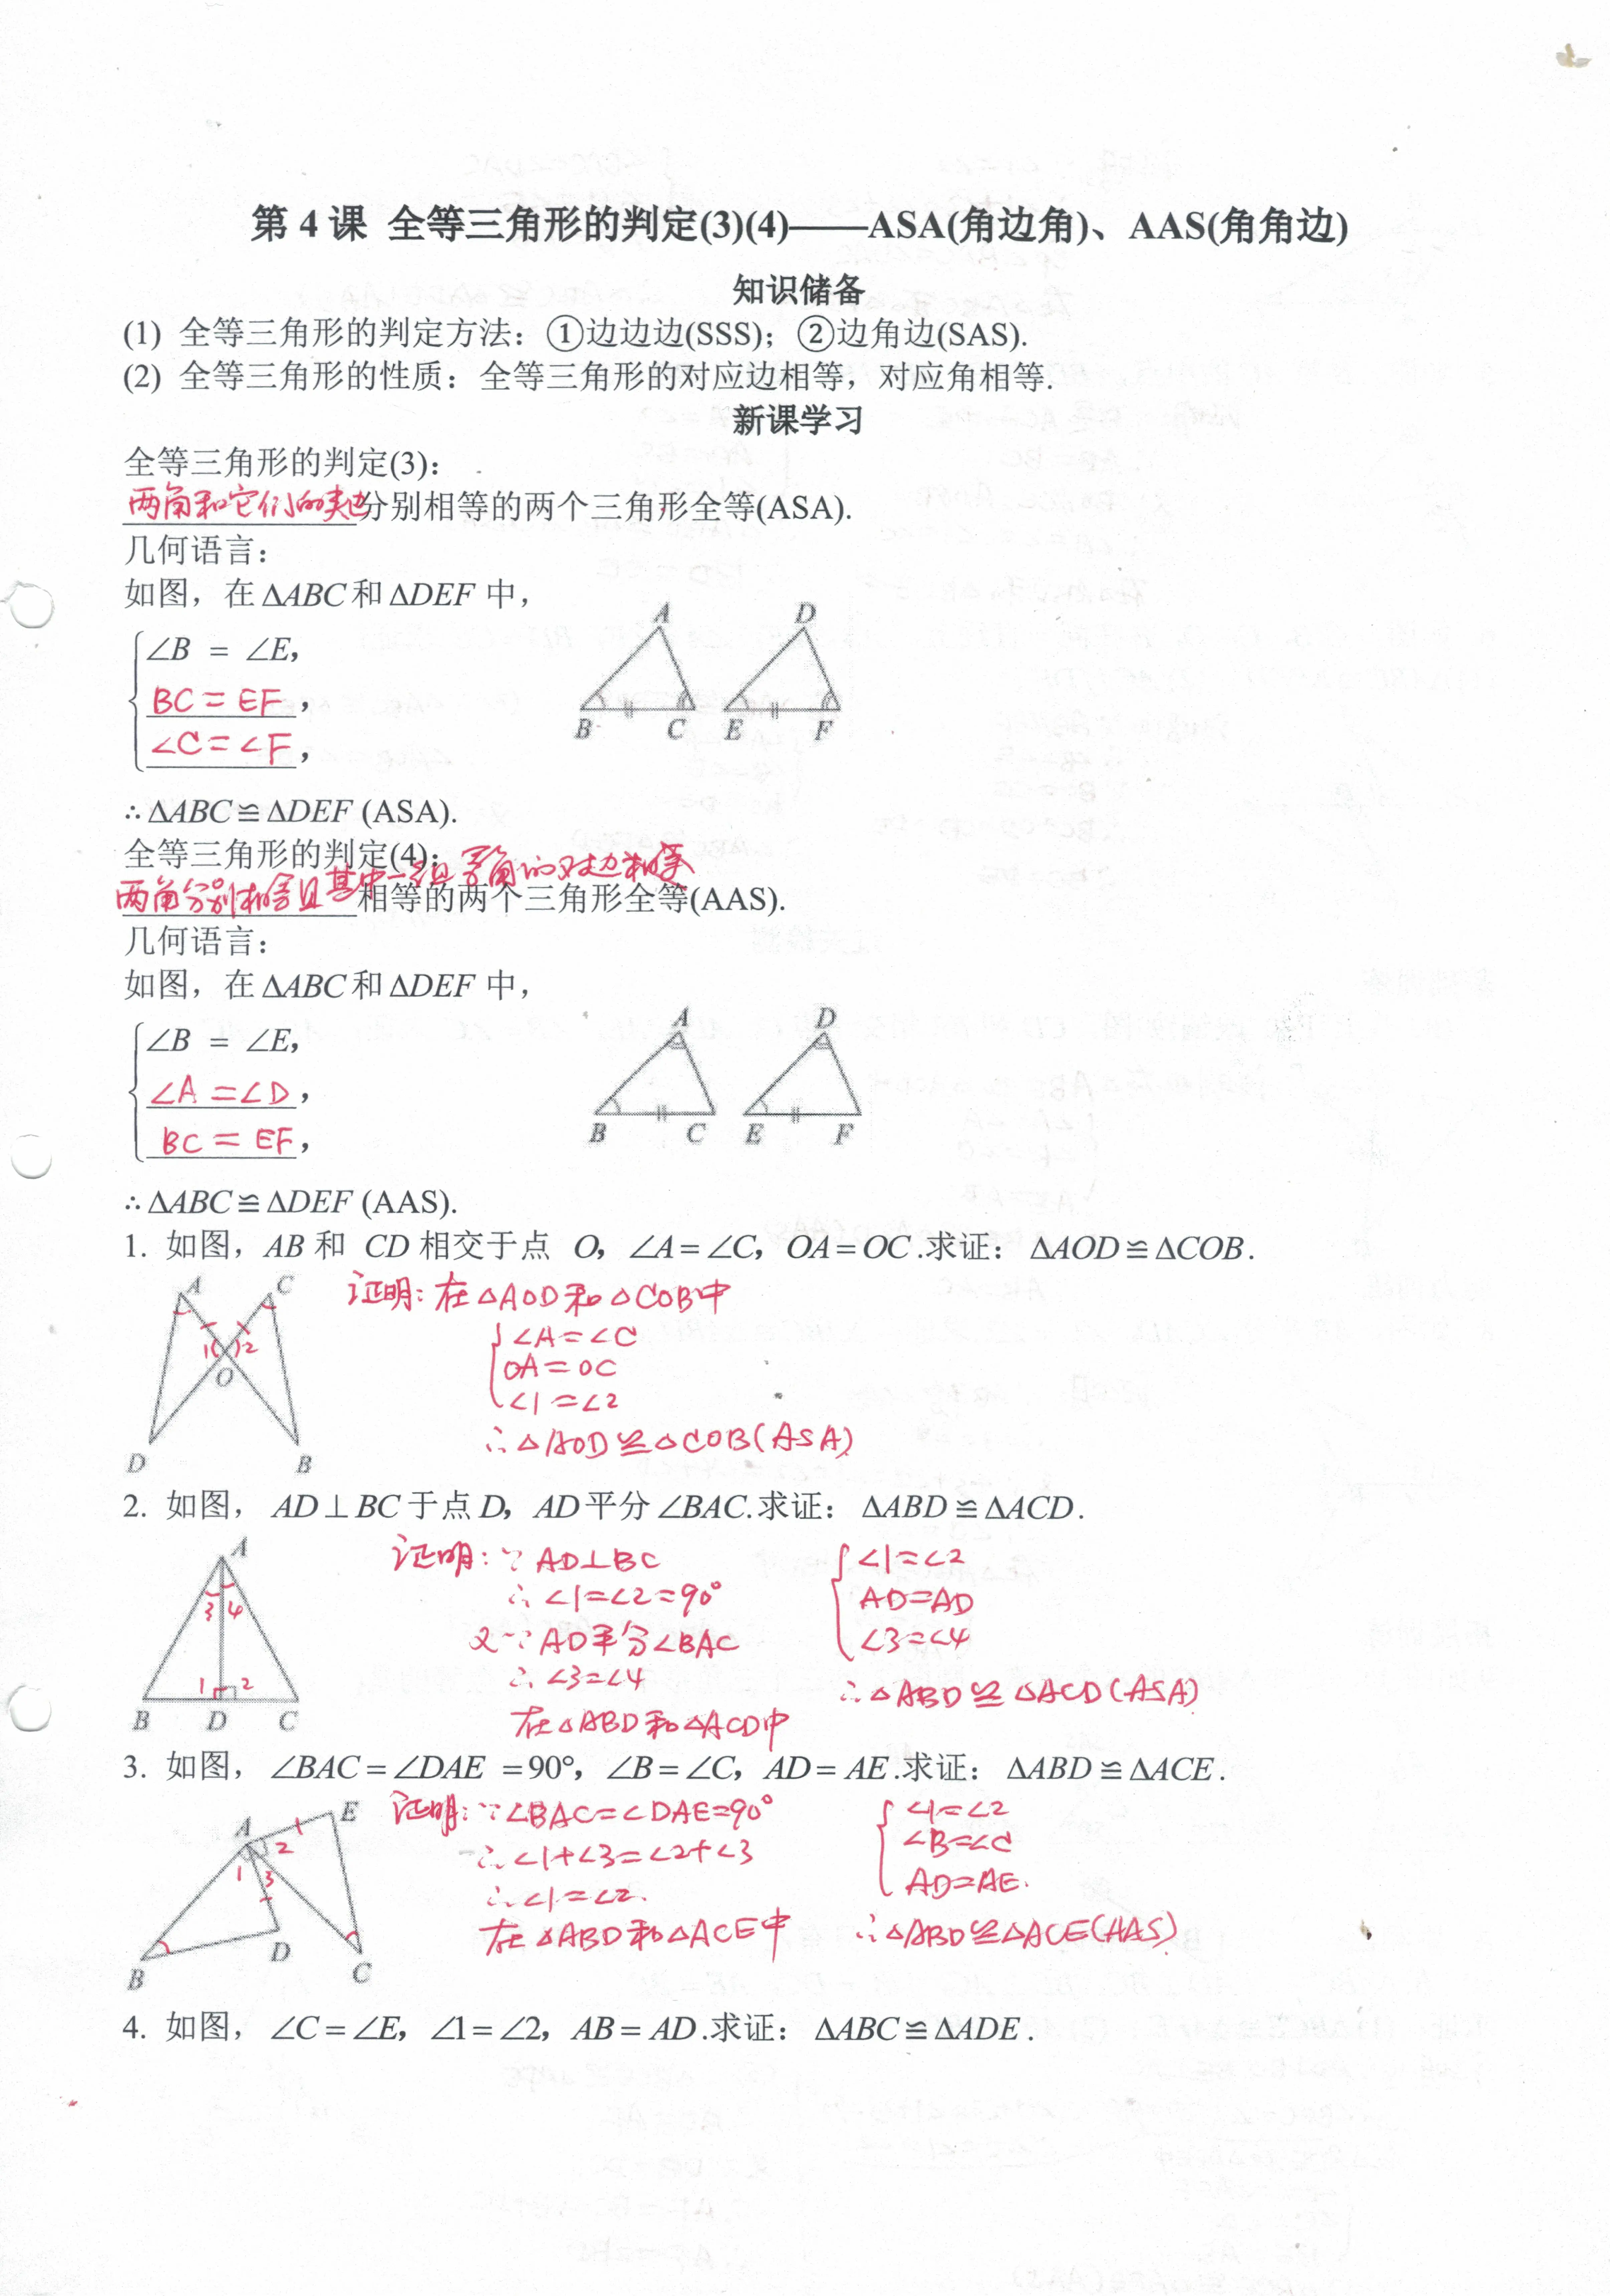 第 4 课 全等三角形的判定(3)(4)——ASA(角边角)、AAS(角角边)
知识储备
(1) 全等三角形的判定方法：①边边边(SSS)；②边角边(SAS).
(2) 全等三角形的性质：全等三角形的对应边相等，对应角相等.
新课学习
全等三角形的判定(3)：
两角和它们的夹边分别相等的两个三角形全等(ASA).
几何语言：
如图，在 ΔABC 和 ΔDEF 中，
∠B = ∠E，
BC = EF，
∠C = ∠F，
A D
B C E F
∴ΔABC≌ΔDEF (ASA).
全等三角形的判定(4)：
两角分别相等且其中一组等角的对边相等
相等的两个三角形全等(AAS).
几何语言：
如图，在 ΔABC 和 ΔDEF 中，
∠B = ∠E，
∠A = ∠D，
BC = EF，
A D
B C E F
∴ΔABC≌ΔDEF (AAS).
1. 如图，AB 和 CD 相交于点 O，∠A=∠C，OA=OC.求证：ΔAOD≌ΔCOB.
A C
1 2
O
D B
证明：在△AOD和△COB中
∠A=∠C
OA=OC
∠1=∠2
∴△AOD≌△COB(ASA)
2. 如图， AD⊥BC于点D，AD平分∠BAC.求证：ΔABD≌ΔACD.
A
3 4
1 2
B D C
证明：∵AD⊥BC
∴∠1=∠2=90°
又∵AD平分∠BAC
∴∠3=∠4
在△ABD和△ACD中
∠1=∠2
AD=AD
∠3=∠4
∴△ABD≌△ACD(ASA)
3. 如图， ∠BAC=∠DAE =90°，∠B=∠C，AD=AE.求证：ΔABD≌ΔACE.
A E
2
1 3
B D C
证明：∵∠BAC=∠DAE=90°
∴∠1+∠3=∠2+∠3
∴∠1=∠2.
在△ABD和△ACE中
∠1=∠2
∠B=∠C
AD=AE.
∴△ABD≌△ACE(AAS)
4. 如图， ∠C=∠E，∠1=∠2，AB=AD.求证：ΔABC≌ΔADE.